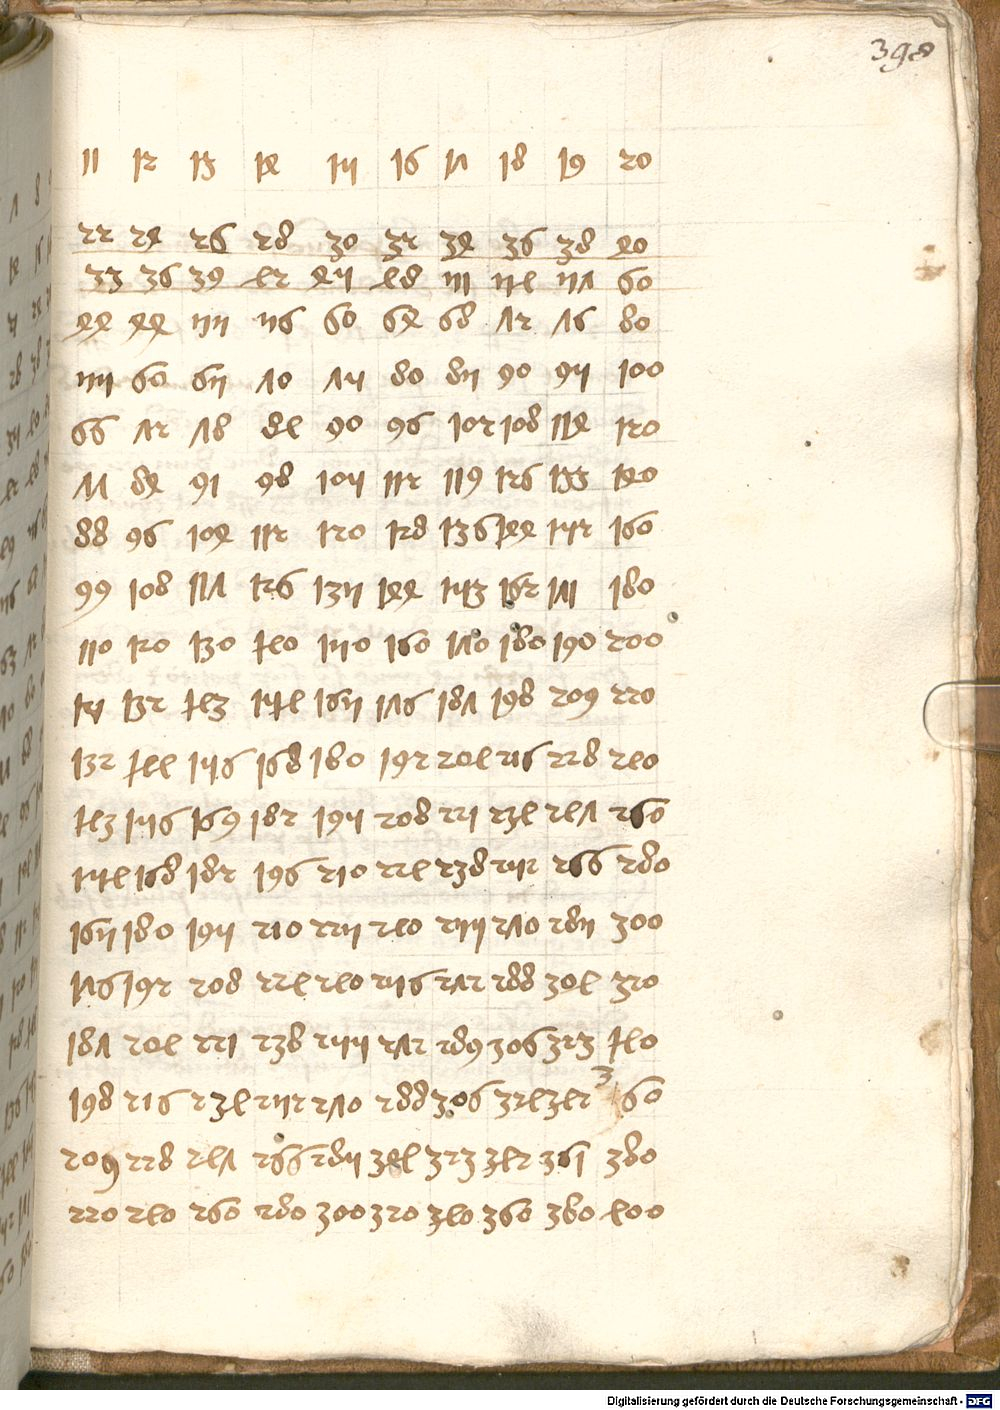 398
11 12 13 14 15 16 17 18 19 20
22 24 26 28 30 32 34 36 38 40
33 36 39 42 45 48 51 54 57 60
44 44 55 56 60 64 68 72 76 80
55 60 65 70 75 80 85 90 95 100
66 72 78 84 90 96 102 108 114 120
77 84 91 98 105 112 119 126 133 140
88 96 104 112 120 128 136 144 152 160
99 108 117 126 135 144 153 162 171 180
110 120 130 140 150 160 170 180 190 200
121 132 143 154 165 176 187 198 209 220
132 144 156 168 180 192 204 216 228 240
143 156 169 182 195 208 221 234 247 260
154 168 182 196 210 224 238 252 266 280
165 180 195 210 225 240 255 270 285 300
176 192 208 224 240 256 272 288 304 320
187 204 221 238 255 272 289 306 323 140
198 216 234 252 270 288 306 324 342 360
209 228 247 266 285 304 323 342 361 380
220 240 260 280 300 320 340 360 380 400
Digitalisierung gefördert durch die Deutsche Forschungsgemeinschaft - DFG